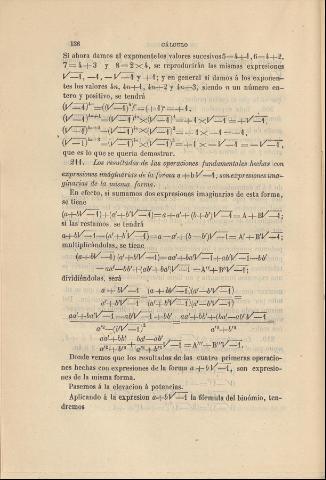 136 CÁLCULO
Si ahora damos al exponente los valores sucesivos 5=4+1, 6=4+2,
7=4+3 y 8=2×4, se reproducirán las mismas expresiones
√−1, −1, −√−1 y +1; y en general si damos á los exponen-
tes los valores 4n, 4n+1, 4n+2 y 4n+3, siendo n un número en-
tero y positivo, se tendrá
que es lo que se queria demostrar.
211. Los resultados de las operaciones fundamentales hechas con
expresiones imaginarias de la forma a+b√−1, son expresiones ima-
ginarias de la misma forma.
En efecto, si sumamos dos expresiones imaginarias de esta forma,
se tiene
(a+b√−1)+(a'+b'√−1)=a+a'+(b+b')√−1=A+B√−1;
si las restamos, se tendrá
a+b√−1−(a'+b'√−1)=a−a'+(b−b')√−1=A'+B'√−1;
multiplicándolas, se tiene
(a+b√−1)(a'+b'√−1)=aa'+ba'√−1+ab'√−1−bb'
=aa'−bb'+(ab'+ba')√−1=A''+B''√−1;
dividiéndolas, será
a+b√−1 (a+b√−1)(a'−b'√−1)
a'+b'√−1 = (a'+b'√−1)(a'−b'√−1) =
aa'+ba'√−1−ab'√−1+bb' aa'+bb'+(ba'−ab')√−1
a'²−(b'√−1)² = a'²+b'²
aa'+bb' ba'−ab'
a'²+b'² + a'²+b'² √−1=A'''+B'''√−1.
Donde vemos que los resultados de las cuatro primeras operacio-
nes hechas con expresiones de la forma a+b√−1, son expresio-
nes de la misma forma.
Pasemos á la elevacion á potencias.
Aplicando á la expresion a+b√−1 la fórmula del binómio, ten-
dremos